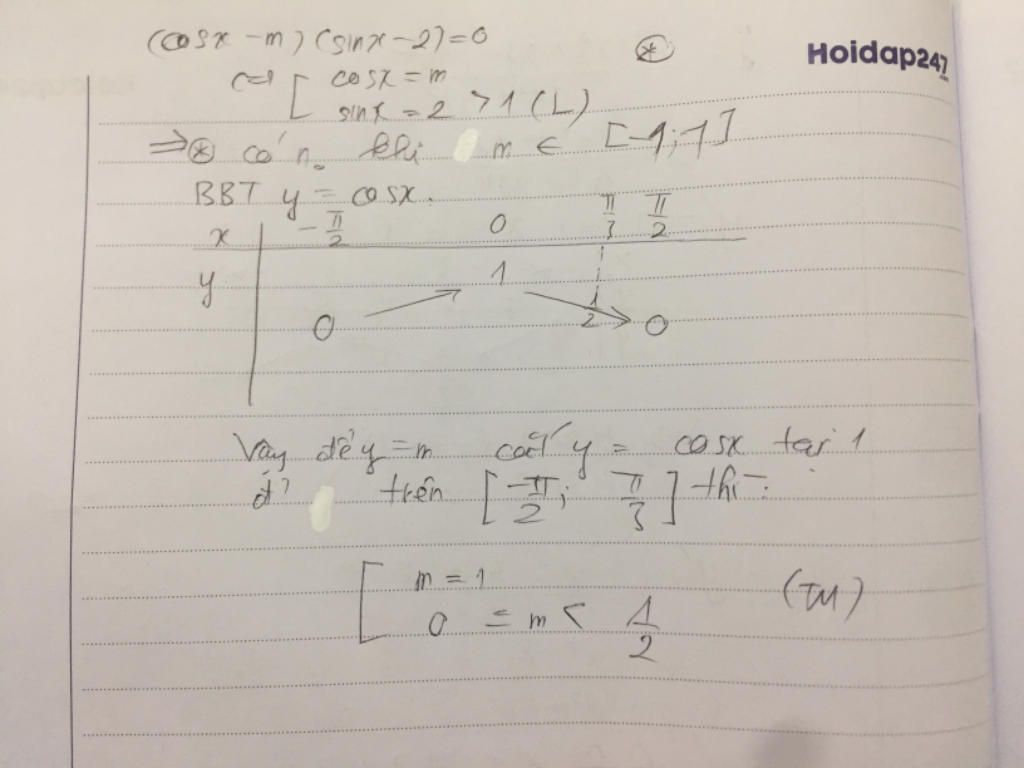 (cosx - m) (sinx - 2) = 0 (*)
Hoidap247
.com
<=> [ cosx = m
sinx = 2 > 1 (L)
=> (*) có n0 khi m ∈ [-1; 1]
BBT y = cosx.
x -π/2 0 π/3 π/2
y 0 1 1/2 0
Vậy để y = m cắt y = cosx tại 1
đ' trên [-π/2; π/3] thì:
[ m = 1
0 = m < 1/2 (TM)